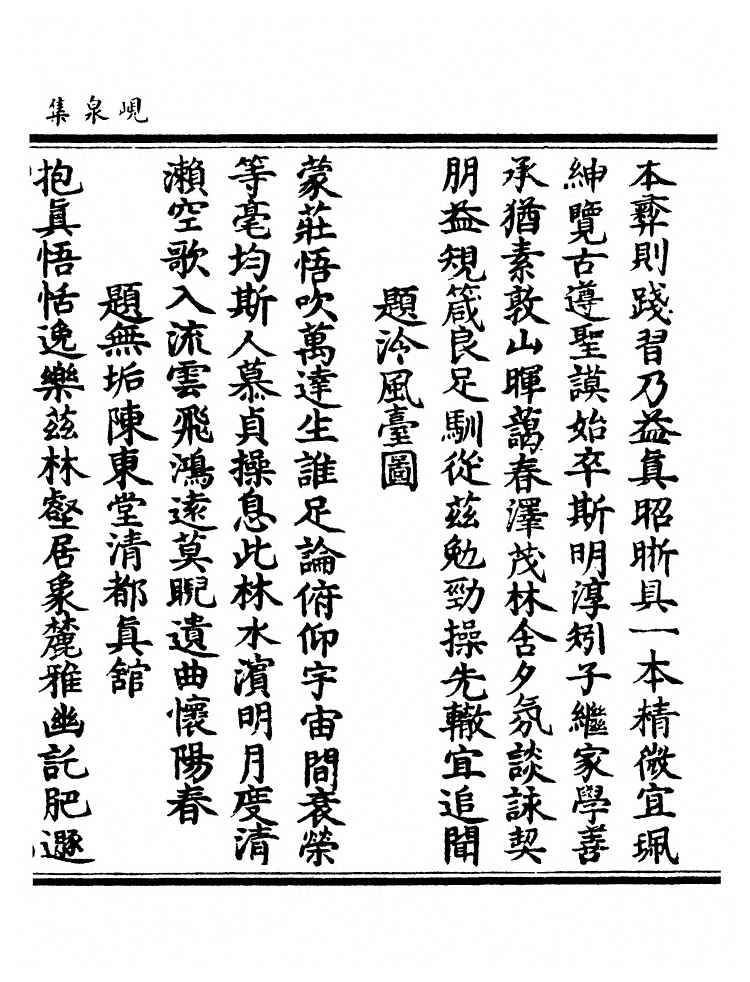 峴泉集
本彛則踐習乃益眞昭晣具一本精微宜珮
紳覽古遵聖謨始卒斯明淳矧子繼家學善
承猶素敦山暉藹春澤茂林含夕氛談詠契
朋益規箴良足馴從茲勉勁操先轍宜追聞
題泠風臺圖
蒙莊悟吹萬達生誰足論俯仰宇宙間衰榮
等毫均斯人慕貞操息此林水濱明月度清
瀨空歌入流雲飛鴻遠莫睨遺曲懷陽春
題無垢陳東堂清都眞舘
抱眞悟恬逸樂茲林壑居象麓雅幽託肥遯